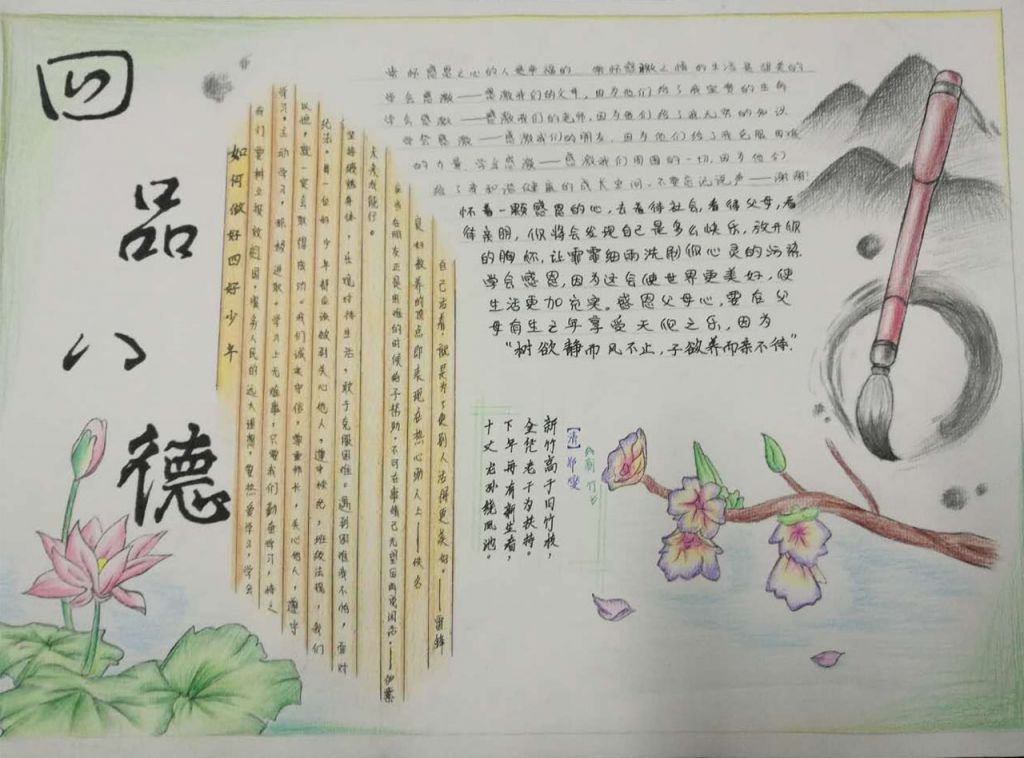 四品八德
如何做好四好少年
我们要树立报效祖国,服务人民的远大理想,要热爱学习,学会
学习,主动学习,积极进取。学习上无难事,只要我们勤奋学习,持之
以恒,就一定会取得成功。我们诚实守信,尊重师长,关心他人,遵守
纪法。每一位好少年都应该做到关心他人,遵守秩序,班级法规,我们
坚持锻炼身体,乐观对待生活,敢于克服困难。遇到困难我不怕,面对
未来我能行。
应当在朋友正是困难的时候给予帮助,不可在事情已无望后再说闲话。——伊索
良好教养的顶点即表现在热心助人上——佚名
自己活着,就是为了使别人活得更美好。——雷锋
常怀感恩之心的人是幸福的 常怀感激之情的生活是甜美的
学会感激——感激我们的父母,因为他们给了我宝贵的生命
学会感激——感激我们的老师,因为他们给了我无穷的知识
学会感激——感激我们的朋友,因为他们给了我克服困难
的力量,学会感激——感激我们周围的一切,因为他们
给了我和谐健康的成长空间,不要忘记说声——谢谢!
怀着一颗感恩的心,去看待社会,看待父母,看
待亲朋,你将会发现自己是多么快乐,放开你
的胸怀,让霏霏细雨洗刷你心灵的污染
学会感恩,因为这会使世界更美好,使
生活更加充实。感恩父母心,要在父
母有生之年享受天伦之乐,因为
“树欲静而风不止,子欲养而亲不待.”
《新竹》
【清】郑燮
新竹高于旧竹枝,
全凭老干为扶持。
下年再有新生者,
十丈龙孙绕凤池。